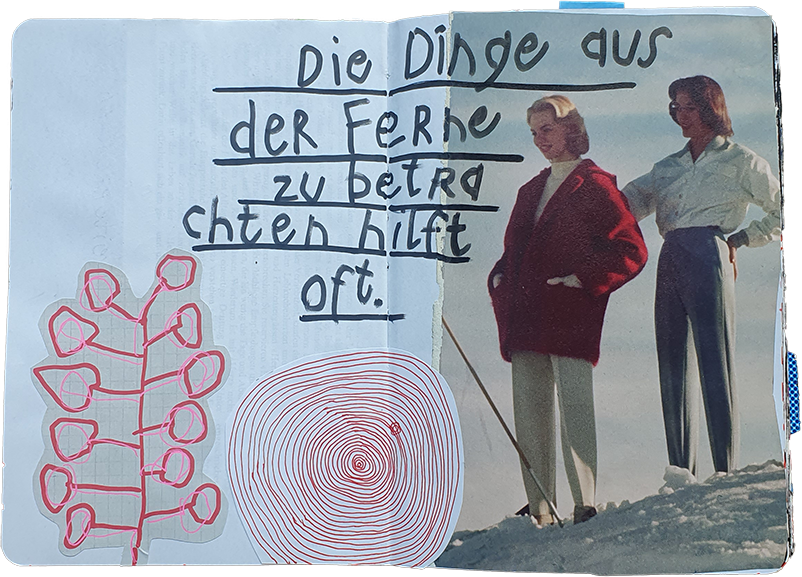 Die Dinge aus
deR FeRne
zu betRa
chten hilft
oft.